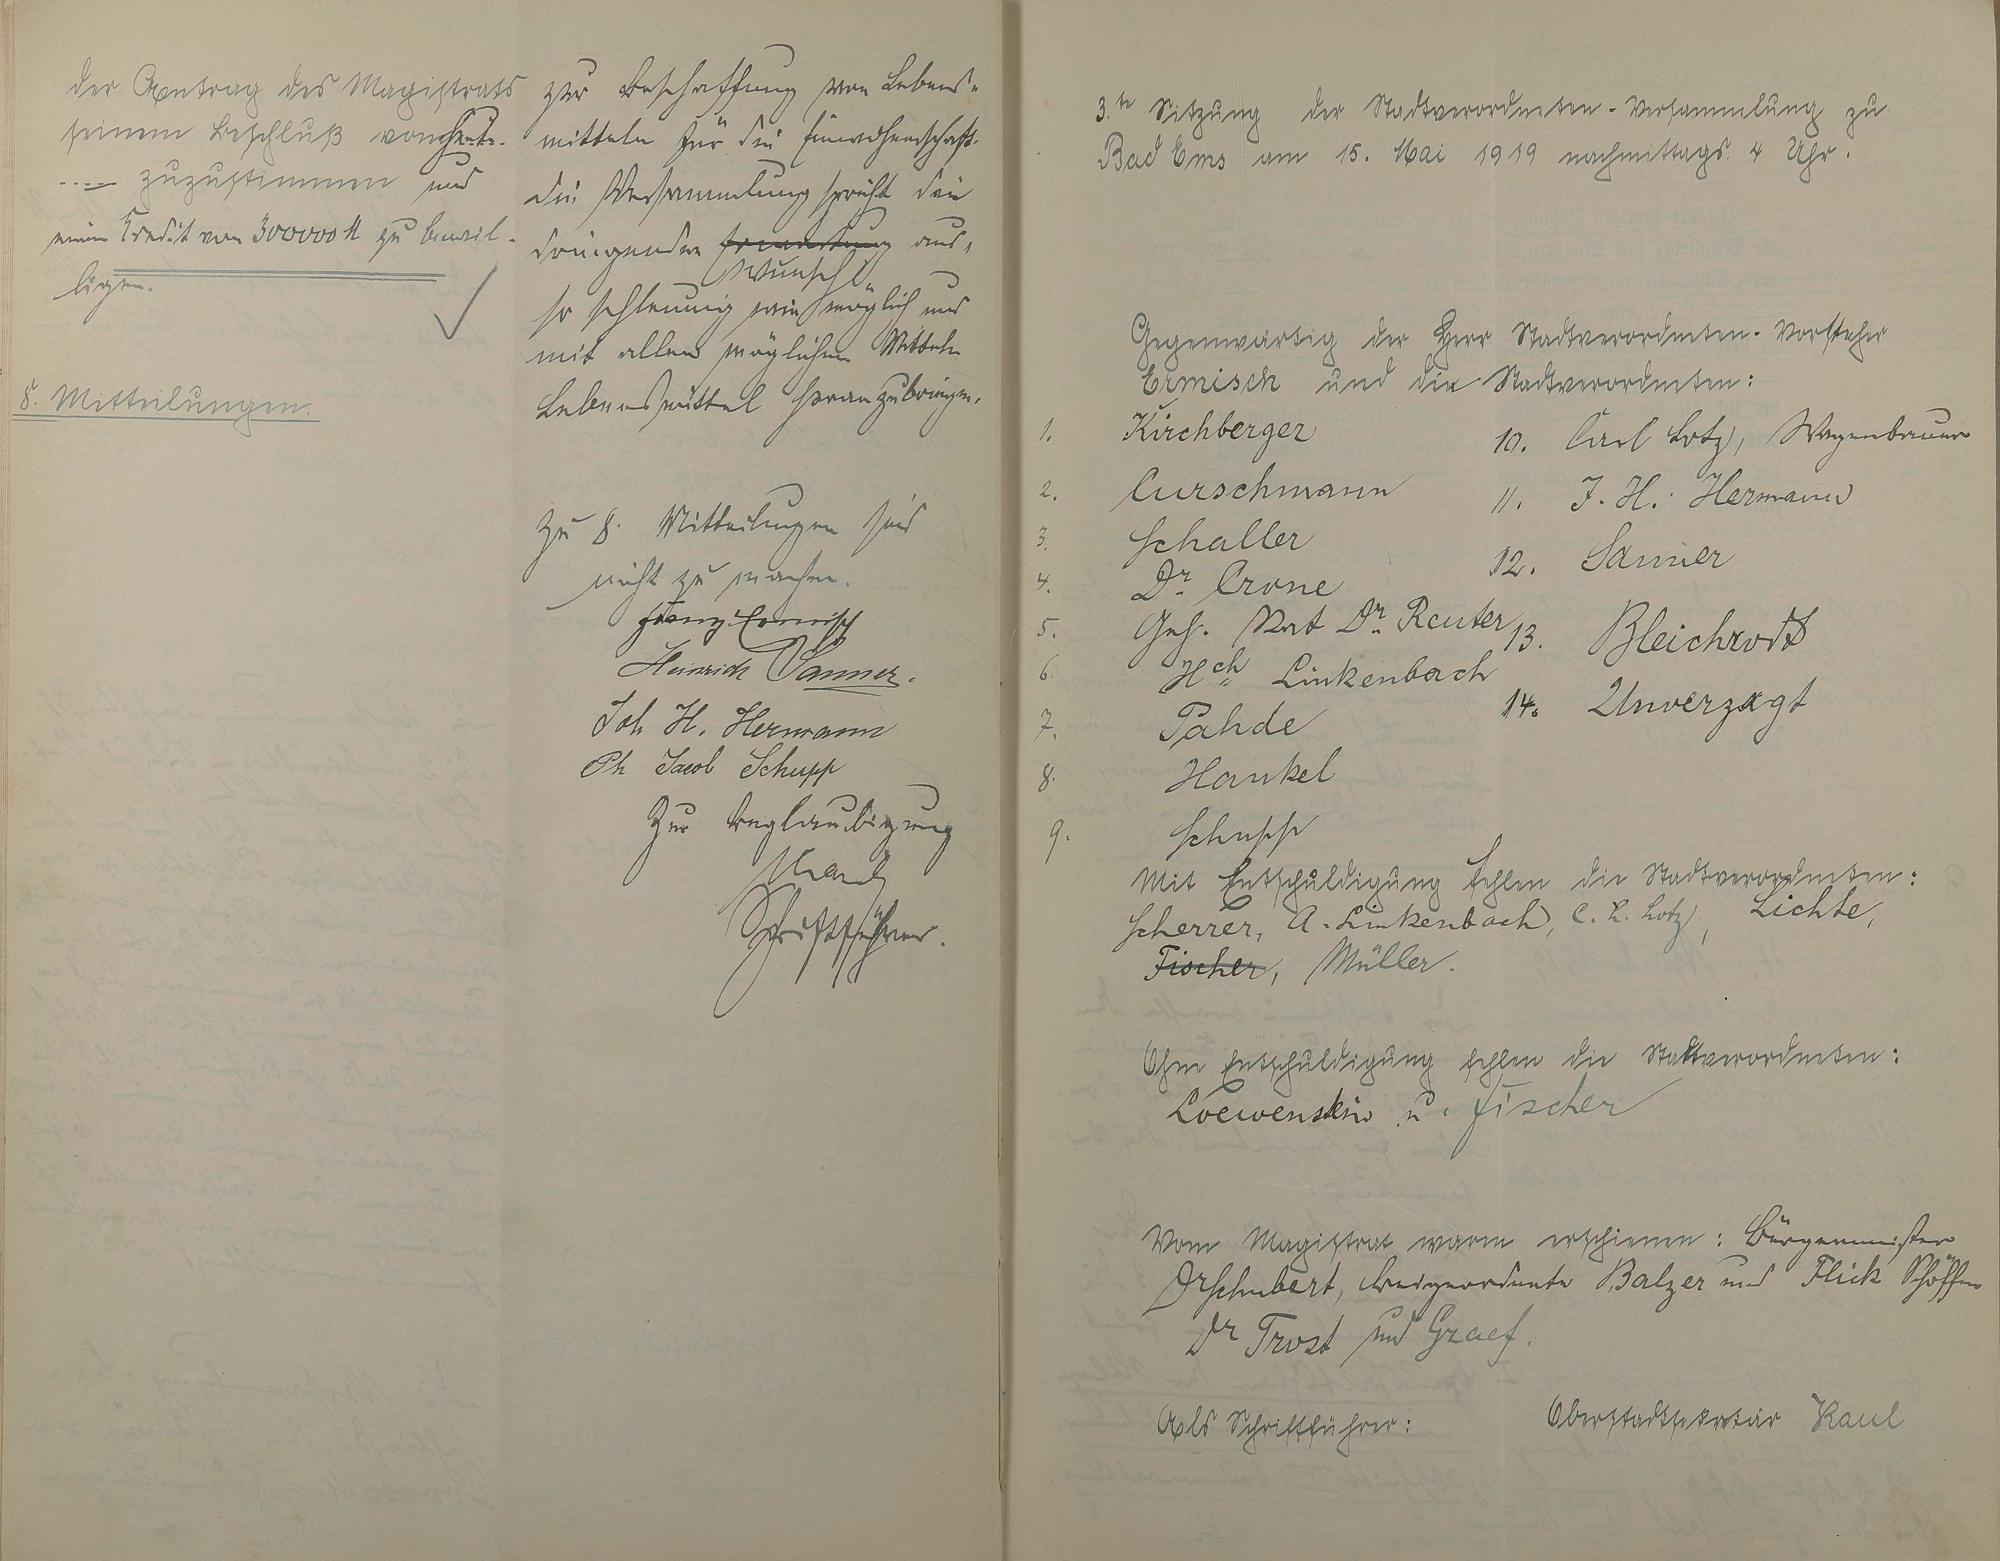 der Antrag des Magistrats
seinem Beschluß von heute
---- zuzustimmen und
einen Kredit von 300000 M zu bewil-
ligen.
8. Mitteilungen.
zur Beschaffung von Lebens-
mitteln für die Einwohnerschaft.
Die Versammlung spricht den
dringenden Erwartung aus,
Wunsch
so schleunig wie möglich und
mit allen möglichen Mitteln
Lebensmittel heranzubringen.
Zu 8. Mitteilungen sind
nicht zu machen.
Franz Ermisch
Heinrich Sanner.
Joh H. Hermann
Ph Jacob Schupp
Zur Beglaubigung
Kaul
Schriftführer.
3.te Sitzung der Stadtverordneten-Versammlung zu
Bad Ems am 15. Mai 1919 nachmittags 4 Uhr.
Gegenwärtig der Herr Stadtverordneten-Vorsteher
Ermisch und die Stadtverordneten:
1. Kirchberger
2. Curschmann
3. Schaller
4. Dr. Crone
5. Geh. Rat Dr. Reuter
6. Hch. Linkenbach
7. Pahde
8. Hankel
9. Schupp
10. Carl Lotz, Wagenbauer
11. J. H. Hermann
12. Sanner
13. Bleichrodt
14. Unverzagt
Mit Entschuldigung fehlen die Stadtverordneten:
Scherrer, A. Linkenbach, C. L. Lotz, Lichte,
Fischer, Müller.
Ohne Entschuldigung fehlen die Stadtverordneten:
Loewenstein u. Fischer
Vom Magistrat waren erschienen: Bürgermeister
Dr Schubert, Beigeordnete Balzer und Flick Schöffen
Dr Trost und Graef.
Als Schriftführer: Oberstadtsekretär Kaul